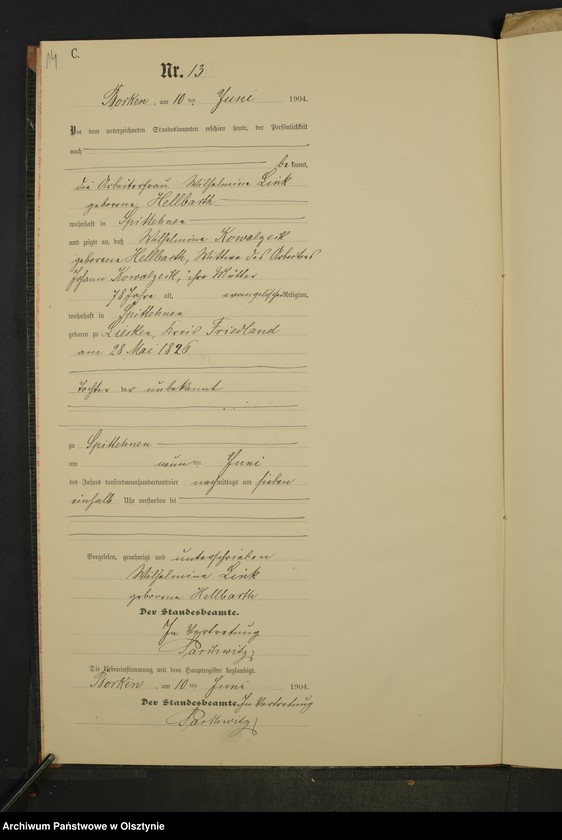 14
C.
Nr. 13
Borken, am 10ten Juni 1904.
Vor dem unterzeichneten Standesbeamten erschien heute, der Persönlichkeit
nach
bekannt,
die Arbeiterfrau Wilhelmine Link
geborene Hellbarth
wohnhaft in Spittehnen
und zeigte an, daß Wilhelmine Kowalzeik
geborene Hellbarth, Wittwe des Arbeiters
Johann Kowalzeik, ihre Mutter
78 Jahre alt, evangelischer Religion,
wohnhaft in Spittehnen
geboren zu Liesken, Kreis Friedland
am 28 Mai 1826
Tochter der unbekannt
zu Spittehnen
am neunten Juni
des Jahres tausendneunhundertundvier nachmittags um sieben
einhalb Uhr verstorben sei
Vorgelesen, genehmigt und unterschrieben
Wilhelmine Link
geborene Hellbarth
Der Standesbeamte.
In Vertretung
Die Uebereinstimmung mit dem Hauptregister beglaubigt.
Borken, am 10ten Juni 1904.
Der Standesbeamte. In Vertretung
Archiwum Państwowe w Olsztynie